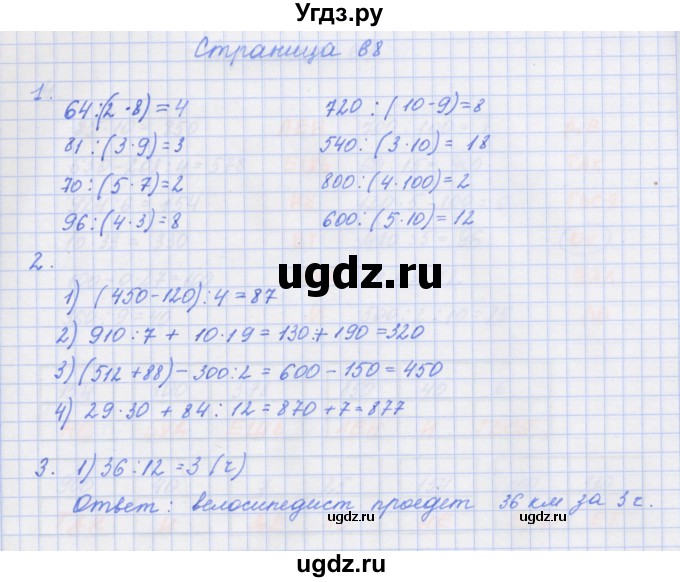 Угдз.ру
Страница 88
1.
64:(2·8)=4
720:(10·9)=8
81:(3·9)=3
540:(3·10)=18
70:(5·7)=2
800:(4·100)=2
96:(4·3)=8
600:(5·10)=12
ugdz.ru
2.
1) (450-120):4=87
2) 910:7 + 10·19=130+190=320
3) (512+88)-300:2=600-150=450
4) 29·30 + 84:12=870+7=877
ugdz.ru
3. 1) 36:12=3 (ч)
Ответ: велосипедист проедет 36 км за 3 ч.
ugdz.ru ugdz.ru
ugdz.ru